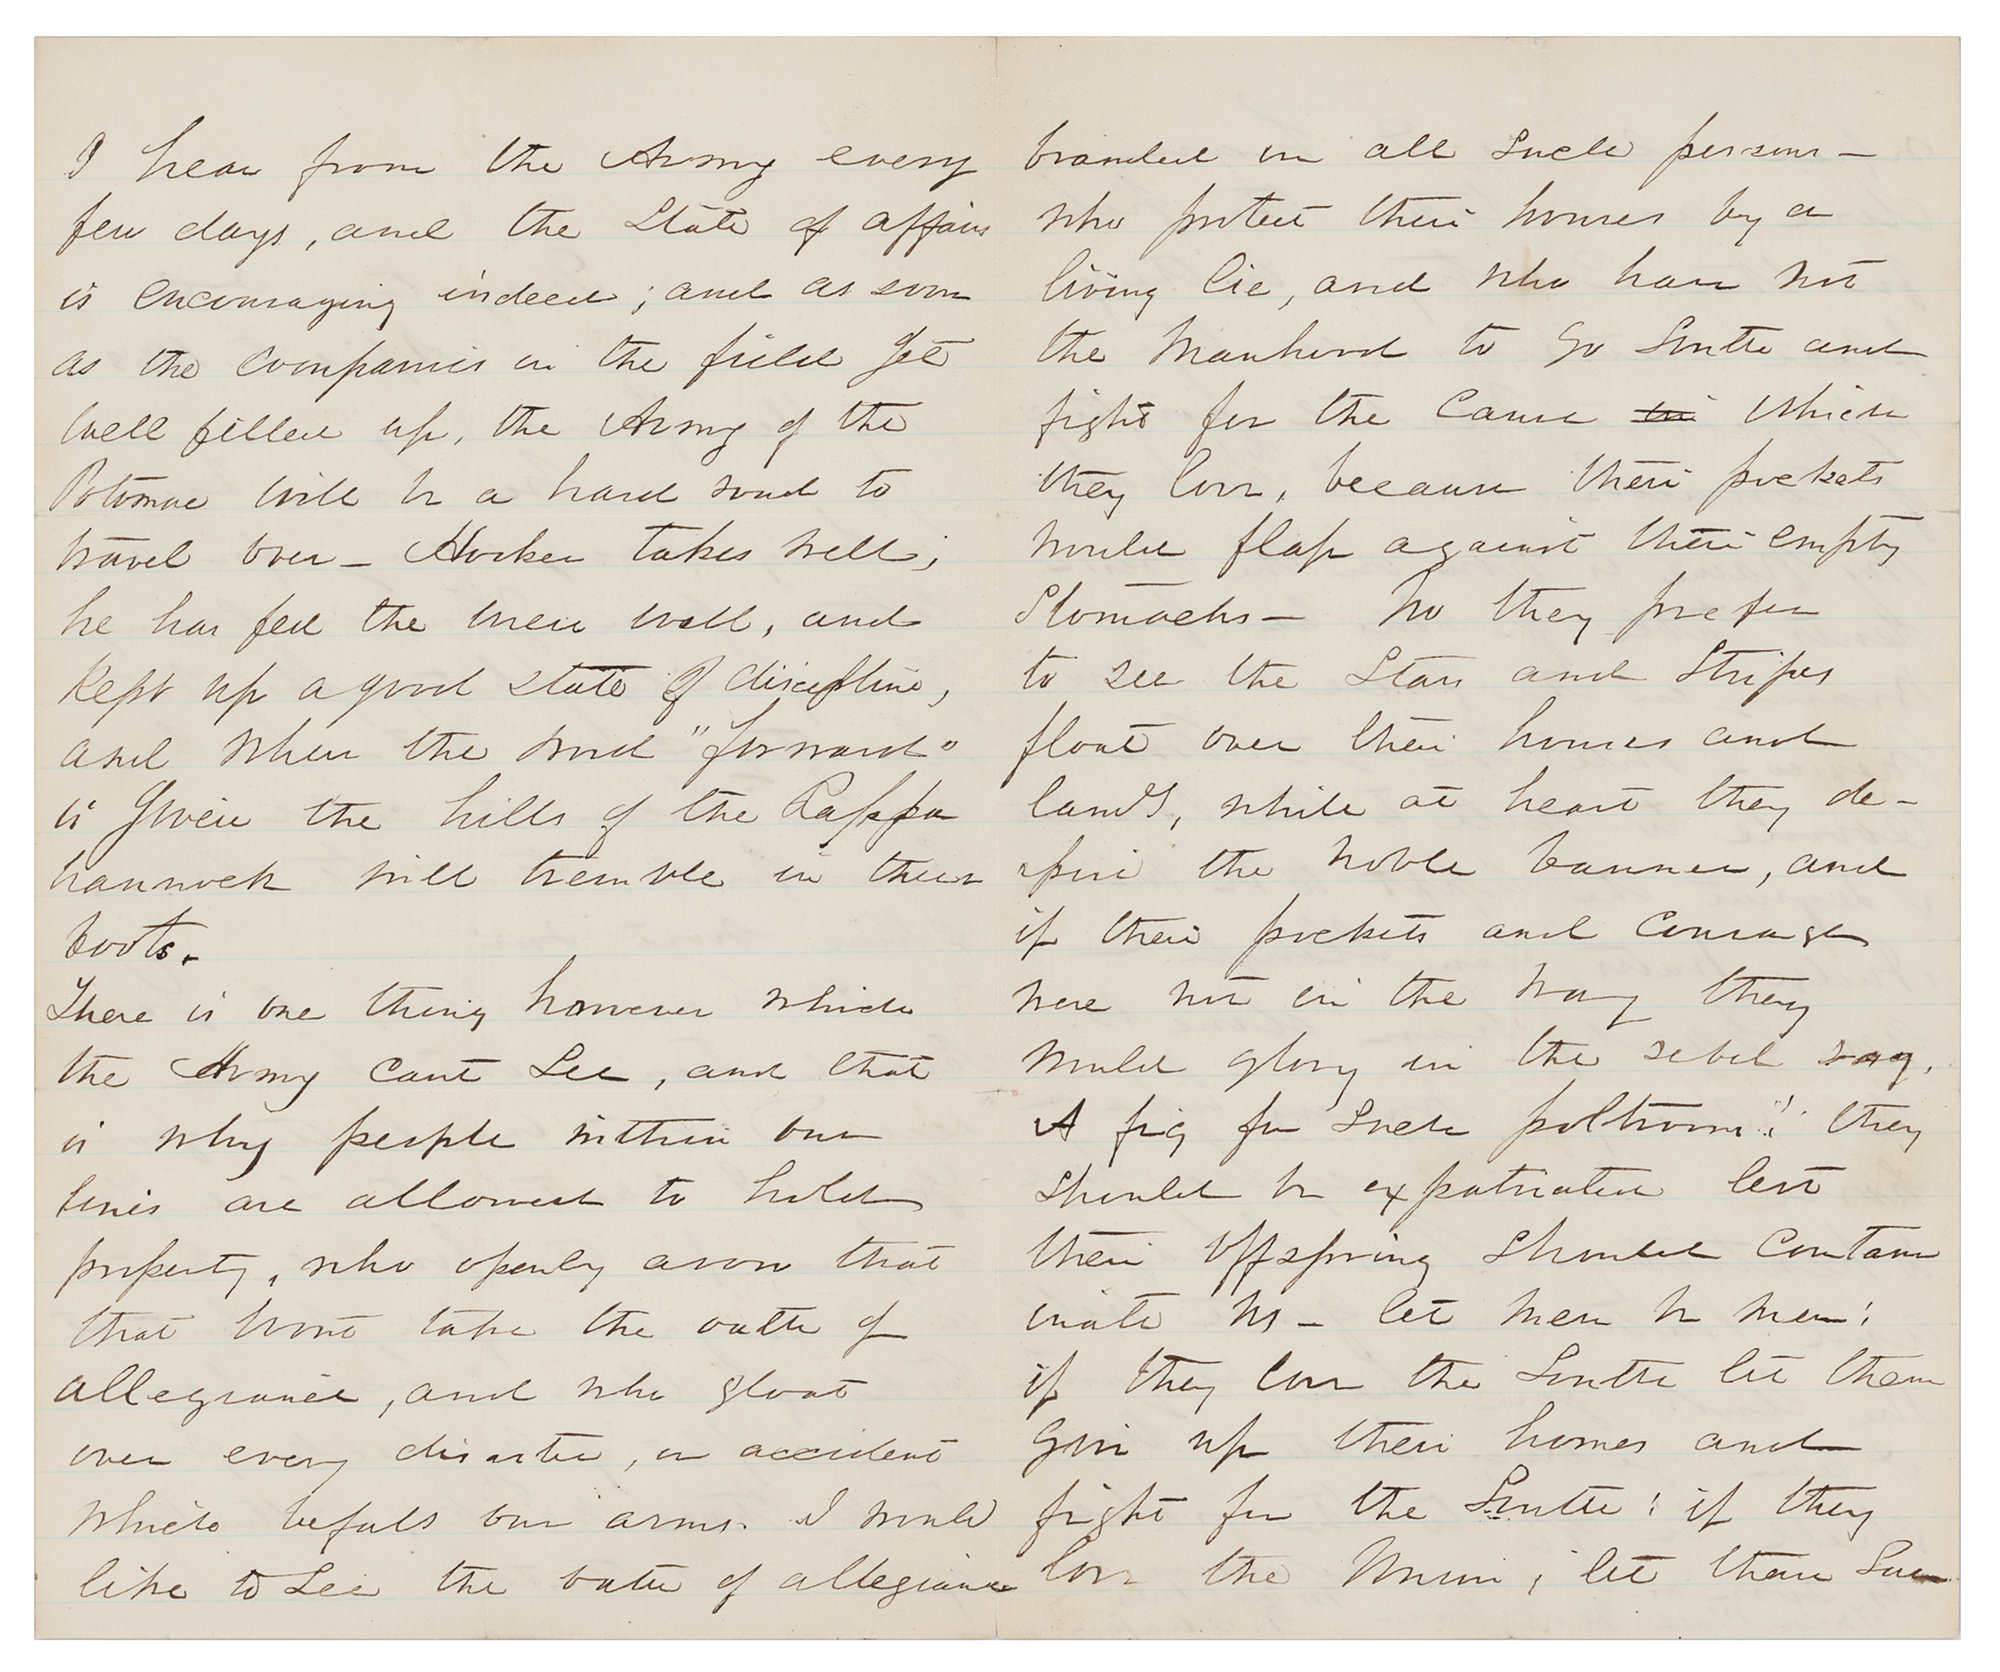 I hear from the Army every
few days, and the State of affairs
is encouraging indeed; and as soon
as the companies in the field get
well filled up, the Army of the
Potomac will be a hard road to
travel over – Hooker takes well;
he has fed the men well, and
kept up a good state of discipline,
and when the word "forward"
is Given the hills of the Rappa
hannock will tremble in their
boots.
There is one thing however which
the Army cant See, and that
is why people within our
lines are allowed to hold
property, who openly avow that
that wont take the oath of
allegiance, and who gloat
over every disaster, or accident
which befalls our arms. I would
like to See the oath of allegiance
branded on all such persons –
who protect their houses by a
living lie, and who have not
the manhood to go South and
fight for the Cause in which
they love, because their pockets
would flap against their empty
Stomachs – No they prefer
to see the Stars and Stripes
float over their houses and
lands, while at heart they de-
spise the noble banner, and
if their pockets and courage
were not in the way they
would glory in the rebel rag.
A fig for such poltroons!! they
should be expatriated lest
their offspring should contam
inate us – let men be men;
if they love the South let them
give up their homes and
fight for the South; if they
love the Union; let them